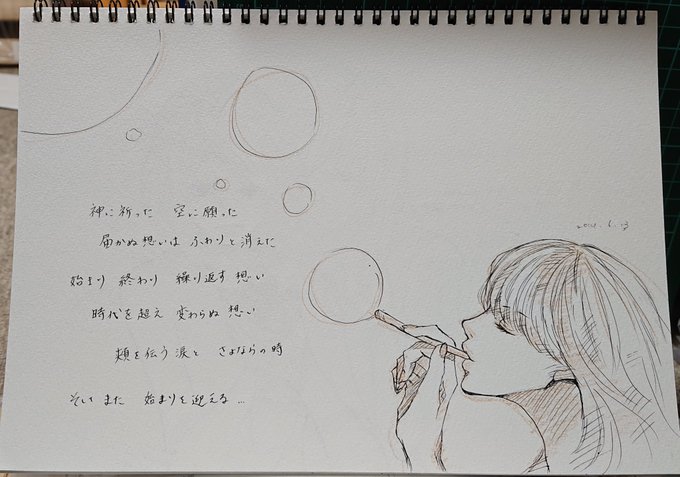 神に祈った 空に願った
届かぬ想いは ふわりと消えた
始まり 終わり 繰り返す想い
時代を超え 変わらぬ想い
頬を伝う涙と さよならの時
そしてまた 始まりを迎える…